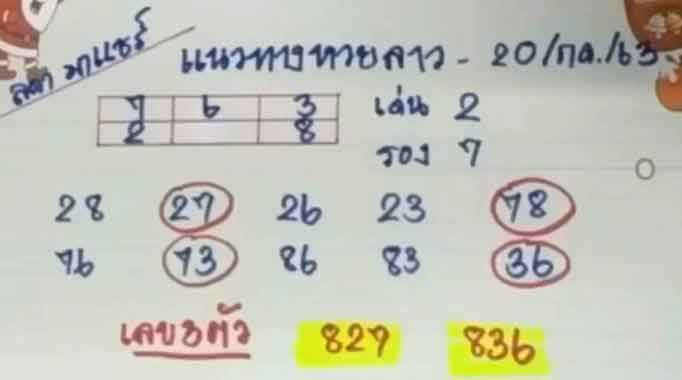 ลดา มาแชร์
แนวทางหวยลาว - 20/กค./63
7 6 3 เด่น 2
2 8
รอง 7
28 27 26 23 78
76 73 86 83 36
เลข3ตัว 827 836